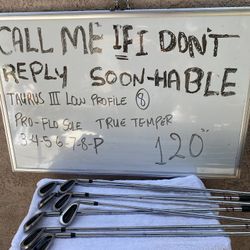 CALL ME IF I DON'T
REPLY SOON-HABLE
TAURUS III LOW PROFILE 8
PRO-FLO SOLE TRUE TEMPER
3-4-5-6-7-8-P 120°°